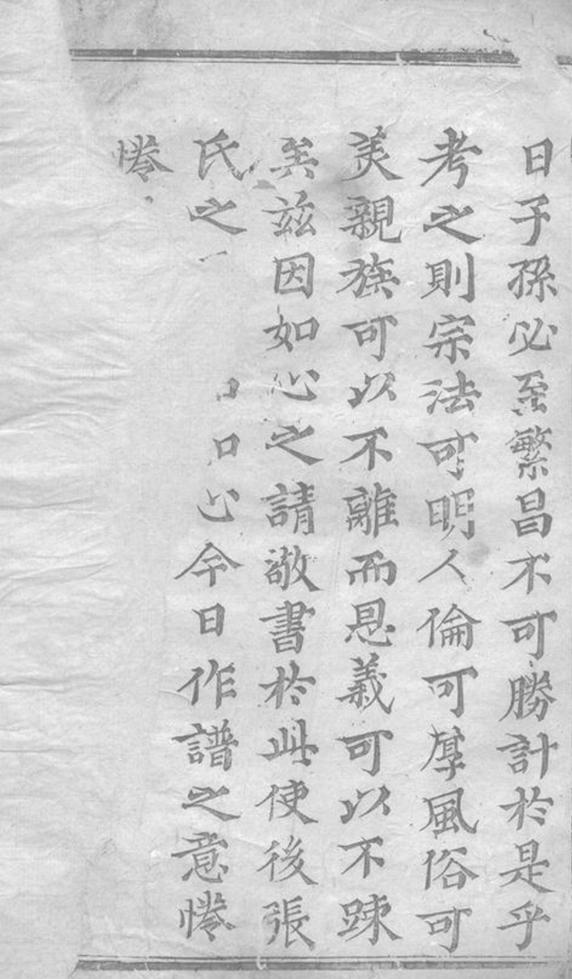 日子孫必至繁昌不可勝計於是乎
考之則宗法可明人倫可厚風俗可
美親族可以不離而恩義可以不踈
矣兹因如心之請敬書於此使後張
氏之心今日作譜之意惓
惓